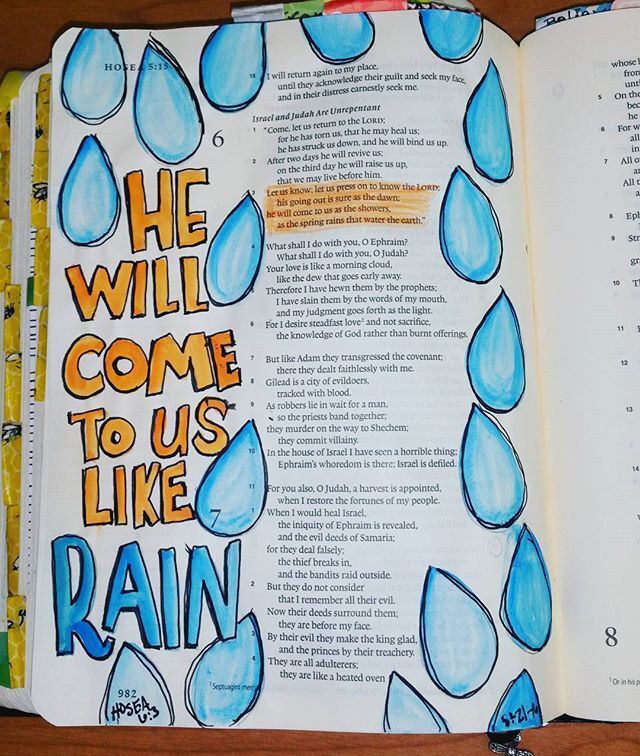 HOSEA 5:15
HE
WILL
COME
TO US
LIKE
RAIN
15 I will return again to my place,
until they acknowledge their guilt and seek my face,
and in their distress earnestly seek me.
Israel and Judah Are Unrepentant
6
1 “Come, let us return to the LORD;
for he has torn us, that he may heal us;
he has struck us down, and he will bind us up.
2 After two days he will revive us;
on the third day he will raise us up,
that we may live before him.
3 Let us know; let us press on to know the LORD;
his going out is sure as the dawn;
he will come to us as the showers,
as the spring rains that water the earth.”
4 What shall I do with you, O Ephraim?
What shall I do with you, O Judah?
Your love is like a morning cloud,
like the dew that goes early away.
5 Therefore I have hewn them by the prophets;
I have slain them by the words of my mouth,
and my judgment goes forth as the light.
6 For I desire steadfast love¹ and not sacrifice,
the knowledge of God rather than burnt offerings.
7 But like Adam they transgressed the covenant;
there they dealt faithlessly with me.
8 Gilead is a city of evildoers,
tracked with blood.
9 As robbers lie in wait for a man,
so the priests band together;
they murder on the way to Shechem;
they commit villainy.
10 In the house of Israel I have seen a horrible thing;
Ephraim's whoredom is there; Israel is defiled.
11 For you also, O Judah, a harvest is appointed,
when I restore the fortunes of my people.
7
1 When I would heal Israel,
the iniquity of Ephraim is revealed,
and the evil deeds of Samaria;
for they deal falsely;
the thief breaks in,
and the bandits raid outside.
2 But they do not consider
that I remember all their evil.
Now their deeds surround them;
they are before my face.
3 By their evil they make the king glad,
and the princes by their treachery.
4 They are all adulterers;
they are like a heated oven
¹ Septuagint mercy
982
HOSEA
6:3
whose
from
unti
5 On the
bec
he
6 For w
all
in
7 All o
a
All t
8 Eph
9 Str
gra
10
11
12
13
14
15
16
8
¹ Or in his p